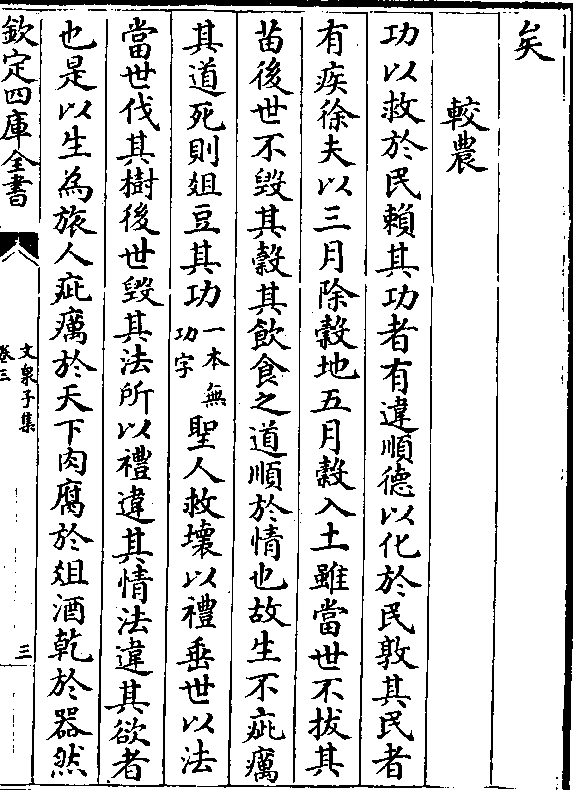 矣
較農
功以救於民賴其功者有違順德以化於民敦其民者
有疾徐夫以三月除穀地五月穀入土雖當世不拔其
苗後世不毀其穀其飲食之道順於情也故生不疵癘
其道死則俎豆其功一本無功字聖人救壞以禮垂世以法
當世伐其樹後世毀其法所以禮違其情法違其欲者
也是以生為旅人疵癘於天下肉腐於俎酒乾於器然
欽定四庫全書
文泉子集
卷三
三